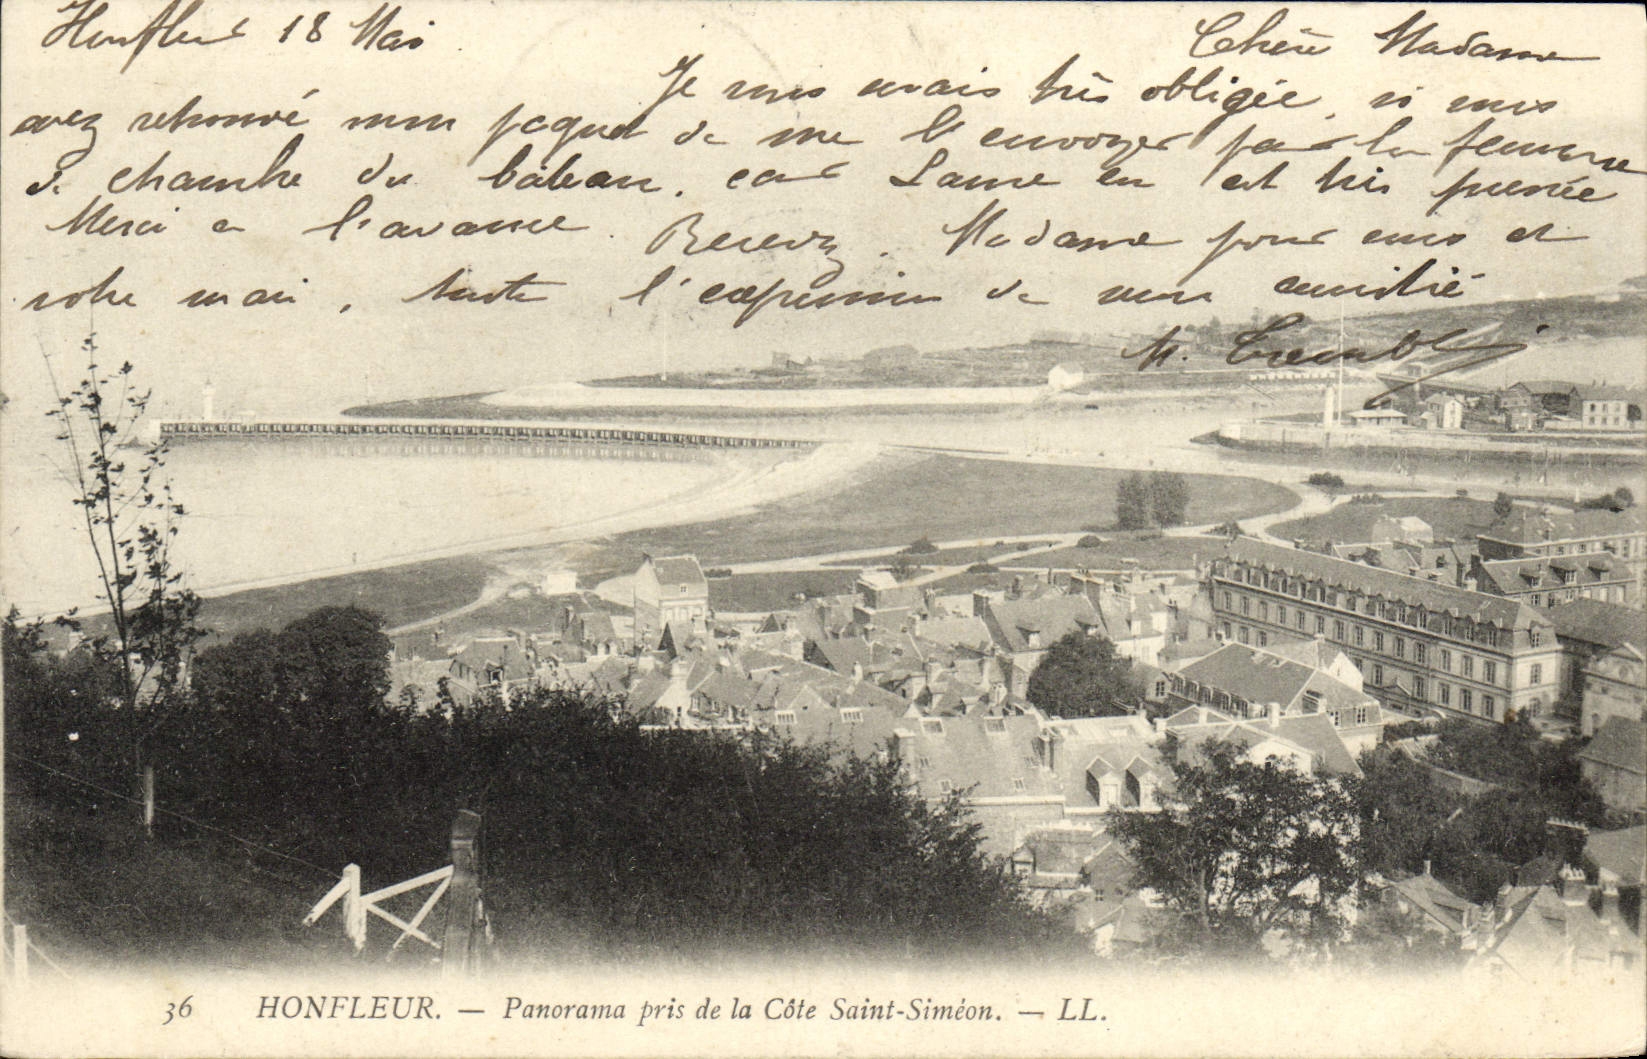 Honfleur 18 Mai
Chère Madame
Je vous serais très obligée, si vous
avez retrouvé mon paquet de me l'envoyer par la femme
de chambre du bateau, car Laure en est très pressée
Merci a l'avance. Recevez, Madame pour vous et
votre mari, toute l'expression de mon amitié
M.
36 HONFLEUR. — Panorama pris de la Côte Saint-Siméon. — LL.